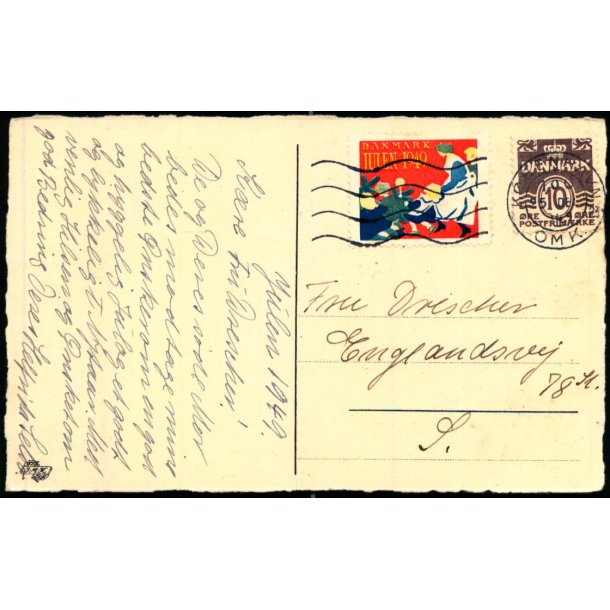 Julen 1949.
Kære Fru Drescher!
De og Deres vil De
bede modtage mine
bedste Ønsker om en god
og hyggelig Jul og et godt
og lykkeligt Nytaar. Med
venlig Hilsen og Ønsket om
god Bedring Deres
DANMARK
JULEN 1949
DANMARK
10
ØRE ØRE
POSTFRIMÆRKE
OMK
Fru Drescher
Englandsvej
78 st.
S.